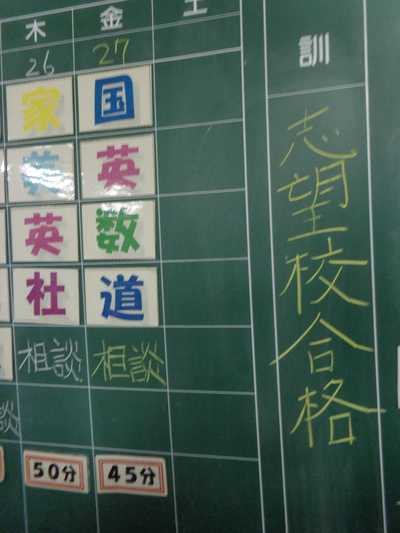 木 金 土
26 27
家 国
英
英 数
社 道
相談 相談
談
50分 45分
訓
志望校合格